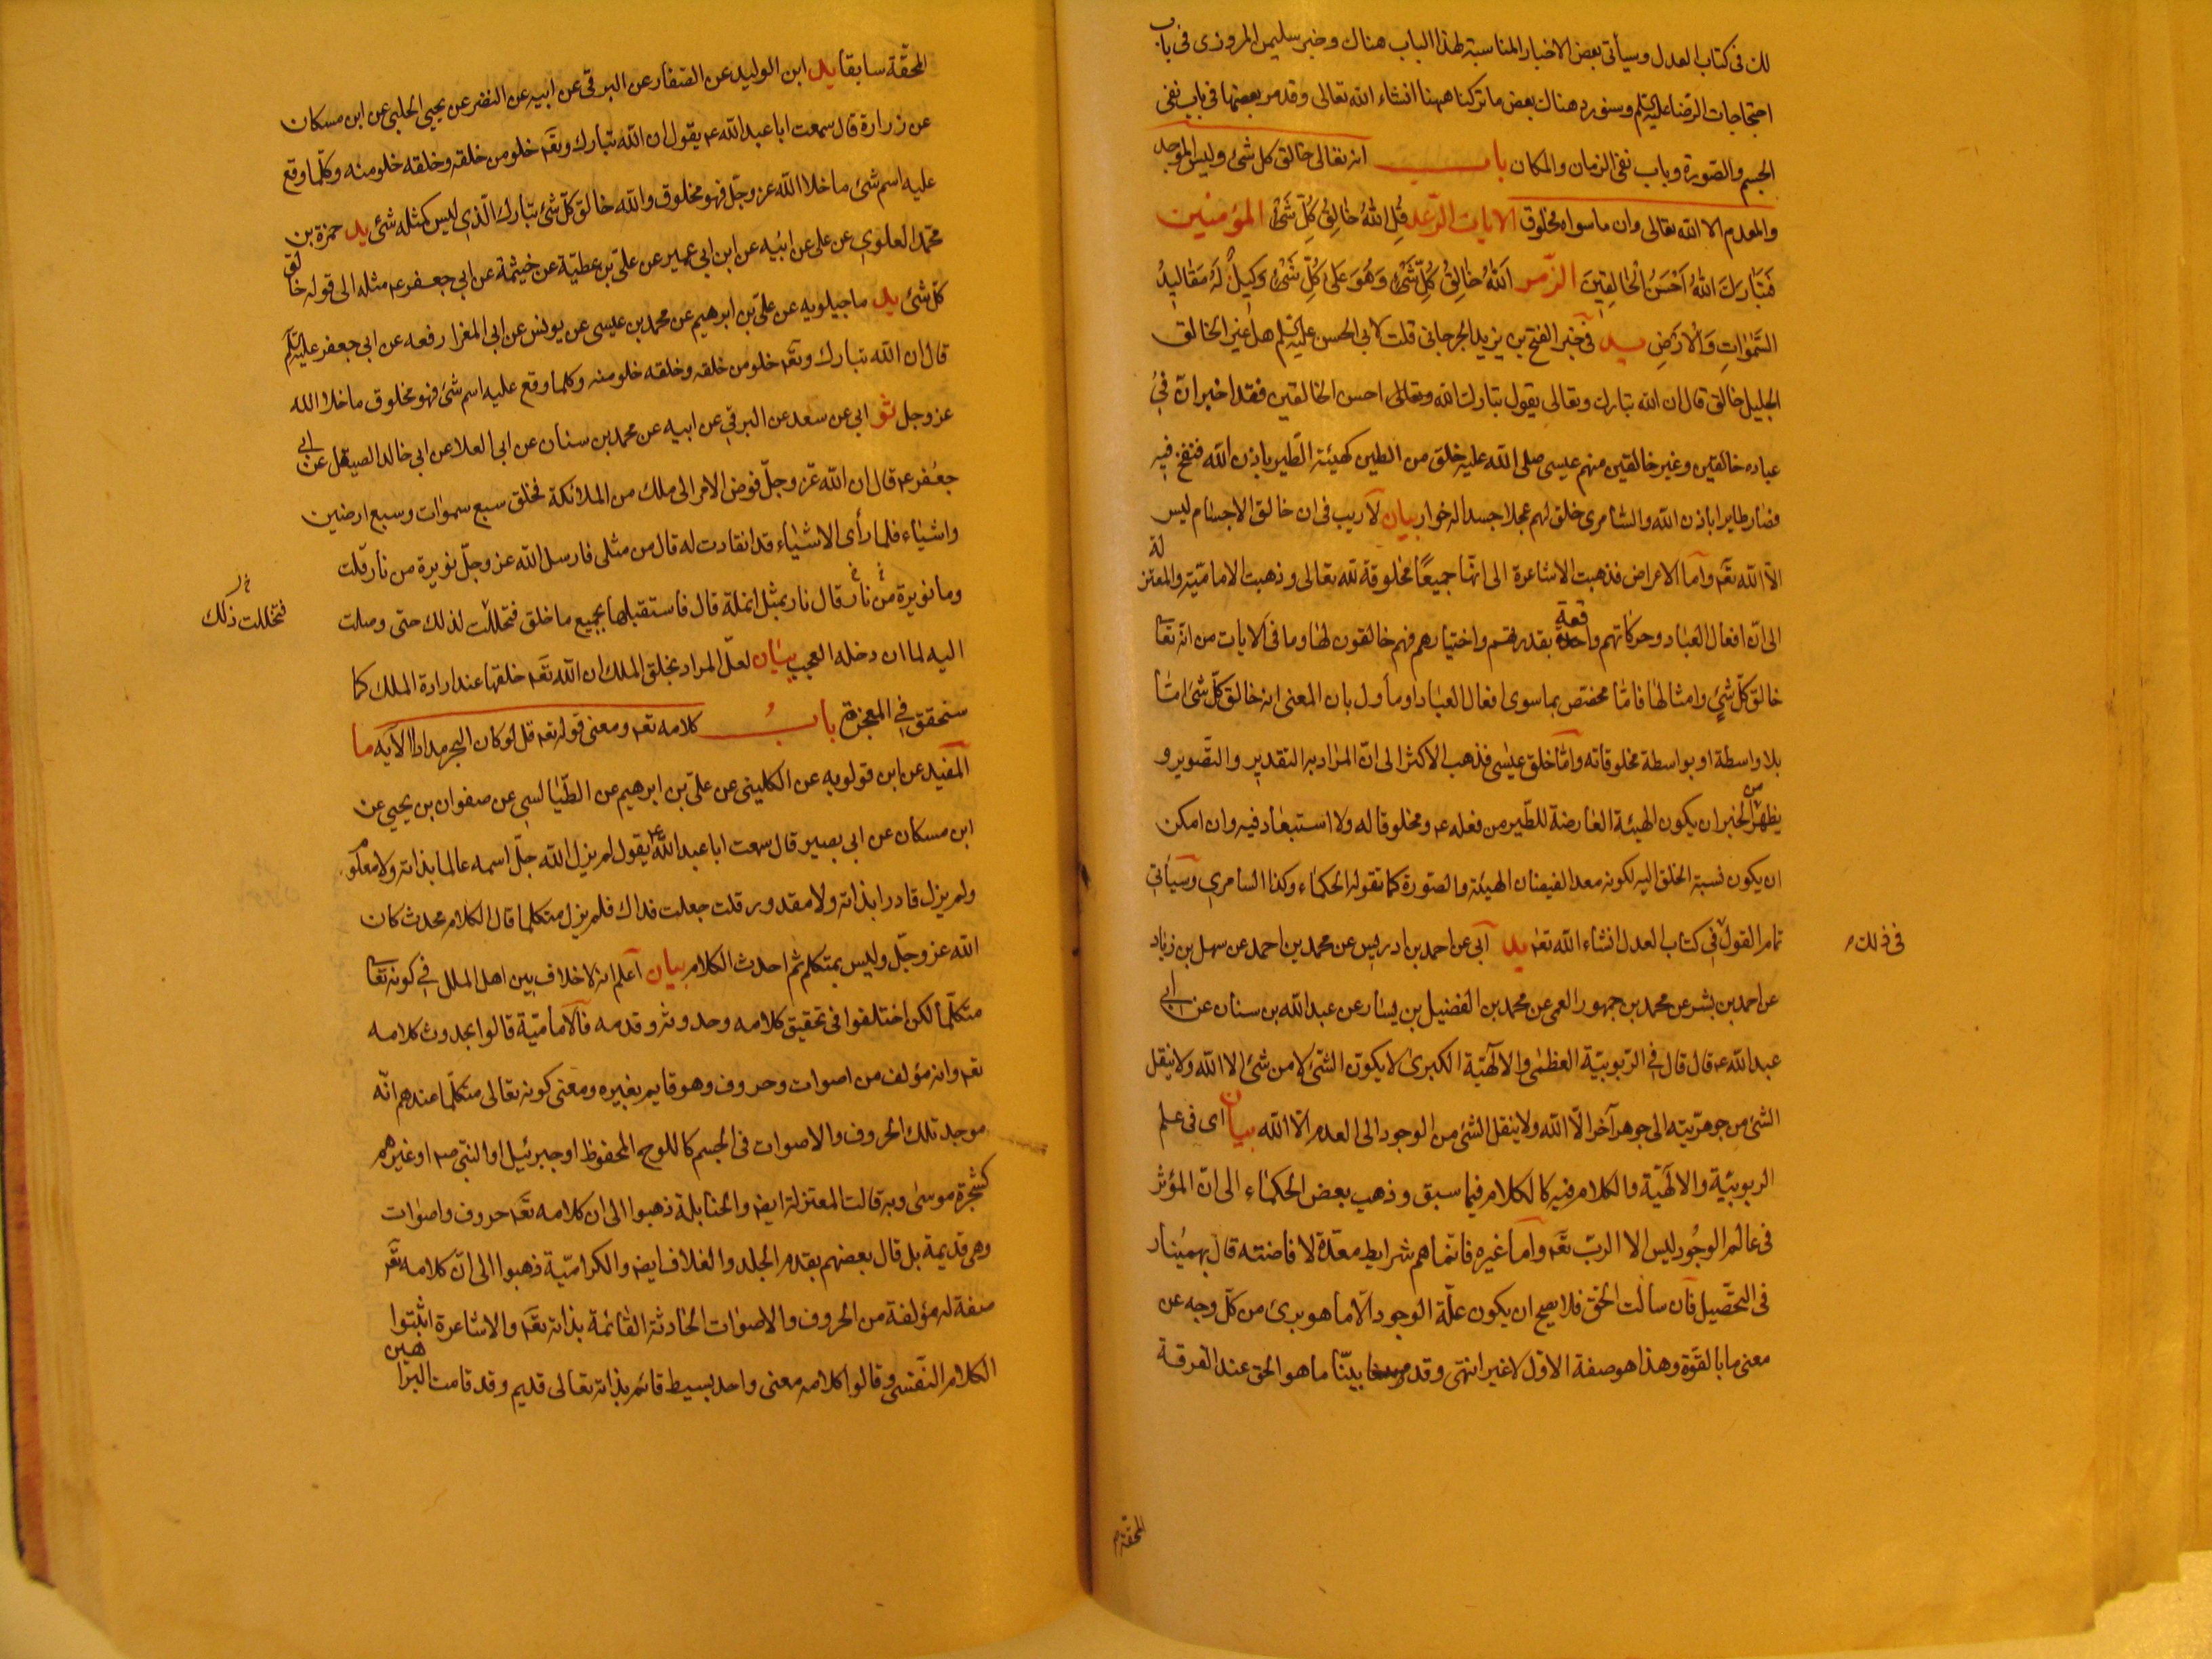 لك فى كتاب العدل وسيأتى بعض الاخبار المناسبة لهذا الباب هناك وخبر سليمن المروزى فى باب
احتجاجات الرضا عليه السلم وسنورد هناك بعض ما تركنا ههنا انشاء الله تعالى وقد مر بعضها فى باب نفى
الجسم والصورة وباب نفى الزمان والمكان باب انه تعالى خالق كل شئ وليس الموجد
والمعدم الا الله تعالى وان ما سواه مخلوق الايات الرّعد قُلِ اللهُ خَالِقُ كُلِّ شَئٍ المؤمنين
فَتَبَارَكَ اللهُ اَحْسَنُ الْخَالِقِينَ الزّمر اَللهُ خَالِقُ كُلِّ شَئٍ وَهُوَ عَلَى كُلِّ شَئٍ وَكِيلٌ لَهُ مَقَالِيدُ
السَّمٰوَاتِ وَالْاَرْضِ يد فى خبر الفتح بن يزيد الجرجانى قلت لابى الحسن عليه السلم هل غير الخالق
الجليل خالق قال ان الله تبارك وتعالى يقول تبارك الله وتعالى احسن الخالقين فقد اخبر ان فى
عباده خالقين وغير خالقين منهم عيسى صلى الله عليه خلق من الطين كهيئة الطّير باذن الله فنفخ فيه
فصار طايرا باذن الله والسّامرى خلق لهم عجلا جسدا له خوار بيان لا ريب فى ان خالق الاجسام ليس
الّا الله تعه وامّا الاعراض فذهبت الاشاعرة الى انّها جميعًا مخلوقة لله تعالى وذهبت الاماميّة والمعتزلة
الى انّ افعال العباد وحركاتهم واقعة بقدرتهم واختيارهم فهم خالقون لها وما فى الايات من انّه تعالى
خالق كلّ شئ وامثالها فامّا مختص بما سوى افعال العباد او مأول بان المعنى انه خالق كلّ شئ امّا
بلا واسطة او بواسطة مخلوقاته وامّا خلق عيسى فذهب الاكثر الى انّ المراد به التقدير والتّصوير و
يظهر من الخبر ان يكون الهيئة العارضة للطّير من فعله ع ومخلوقا له ولا استبعاد فيه وان امكن
ان يكون نسبة الخلق اليه لكونه معدا لفيضان الهيئة والصّورة كما تقوله الحكماء وكذا السامرى وسيأتى
تمام القول فى كتاب العدل انشاء الله تعه يد ابى عن احمد بن ادريس عن محمد بن احمد عن سهل بن زياد
فى ذلك
عن احمد بن بشر عن محمد بن جمهور العمى عن محمد بن الفضيل بن يسار عن عبد الله بن سنان عن ابى
عبد الله ع قال قال فى الرّبوبيّة العظمى والالٰهيّة الكبرى لا يكوّن الشئ لا من شئ الا الله ولا ينقل
الشئ من جوهريّته الى جوهر آخر الّا الله ولا ينقل الشئ من الوجود الى العدم الّا الله بيان اى فى علم
الربوبيّة والالٰهيّة والكلام فيه كالكلام فيما سبق وذهب بعض الحكماء الى انّ المؤثر
فى عالم الوجُود ليس الا الربّ تعه وامّا غيره فانّما هم شرايط معدّة لافاضته قال بهمينار
فى التحصيل فان سألت الحق فلا يصح ان يكون علّة الوجود الّا ما هو برئ من كلّ وجه عن
معنى ما بالقوّة وهذا هو صفة الاوّل لا غير انتهى وقد بيّنا ما هو الحق عند الفرقة
المحقّة
المحقّة سابقا يد ابن الوليد عن الصّفار عن البرقى عن ابيه عن النضر عن يحيى الحلبى عن ابن مسكان
عن زرارة قال سمعت ابا عبد الله ع يقول ان الله تبارك وتعه خلو من خلقه وخلقه خلو منه وكلّما وقع
عليه اسم شئ ما خلا الله عز وجلّ فهو مخلوق والله خالق كلّ شئ تبارك الّذى ليس كمثله شئ يد حمزة بن
محمّد العلوى عن على عن ابيه عن ابن ابى عمير عن علىّ بن عطيّة عن خيثمة عن ابى جعفر ع مثله الى قوله خالق
كلّ شئ يد ماجيلويه عن علىّ بن ابرهيم عن محمد بن عيسى عن يونس عن ابى المغرا رفعه عن ابى جعفر عليه السلم
قال ان الله تبارك وتعه خلو من خلقه وخلقه خلو منه وكلما وقع عليه اسم شئ فهو مخلوق ما خلا الله
عز وجل ثو ابى عن سعد عن البرقى عن ابيه عن محمد بن سنان عن ابى العلا عن ابى خالد الصيقل عن ابى
جعفر ع قال ان الله عزّ وجلّ فوض الامر الى ملك من الملائكة فخلق سبع سموات وسبع ارضين
واشياء فلما رأى الاشياء قد انقادت له قال من مثلى فارسل الله عز وجلّ نويرة من نار قلت
وما نويرة من نار قال نار بمثل انملة قال فاستقبلها بجميع ما خلق فتخللت لذلك حتى وصلت
فتخللت ذلك
اليه لما ان دخله العجب بيان لعلّ المراد بخلق الملك ان الله تعه خلقها عند ارادة الملك كما
سنحقق فى المعجزة باب كلامه تعه ومعنى قوله تعه قل لو كان البحر مدادا الآيه ما
المفيد عن ابن قولويه عن الكلينى عن علىّ بن ابرهيم عن الطّيالسى عن صفوان بن يحيى عن
ابن مسكان عن ابى بصير قال سمعت ابا عبد الله ع يقول لم يزل الله جلّ اسمه عالما بذاته ولا معلوم
ولم يزل قادرا بذاته ولا مقدور قلت جعلت فداك فلم يزل متكلما قال الكلام محدث كان
الله عز وجلّ وليس بمتكلم ثم احدث الكلام بيان اعلم انه لا خلاف بين اهل الملل فى كونه تعالى
متكلّما لكن اختلفوا فى تحقيق كلامه وحدوثه وقدمه فالاماميّة قالوا بحدوث كلامه
تعه وانه مؤلف من اصوات وحروف وهو قايم بغيره ومعنى كونه تعالى متكلّما عندهم انّه
موجد تلك الحروف والاصوات فى الجسم كاللوح المحفوظ او جبرئيل او النبّى ص او غيرهم
كشجرة موسى وبه قالت المعتزلة ايض والحنابلة ذهبوا الى ان كلامه تعه حروف واصوات
وهى قديمة بل قال بعضهم بقدم الجلد والغلاف ايض والكراميّة ذهبوا الى انّ كلامه تعه
صفة له مؤلفة من الحروف والاصوات الحادثة القائمة بذاته تعه والاشاعرة اثبتوا
الكلام النّفسى وقالوا كلامه معنى واحد بسيط قائم بذاته تعالى قديم وقد قامت البراهين